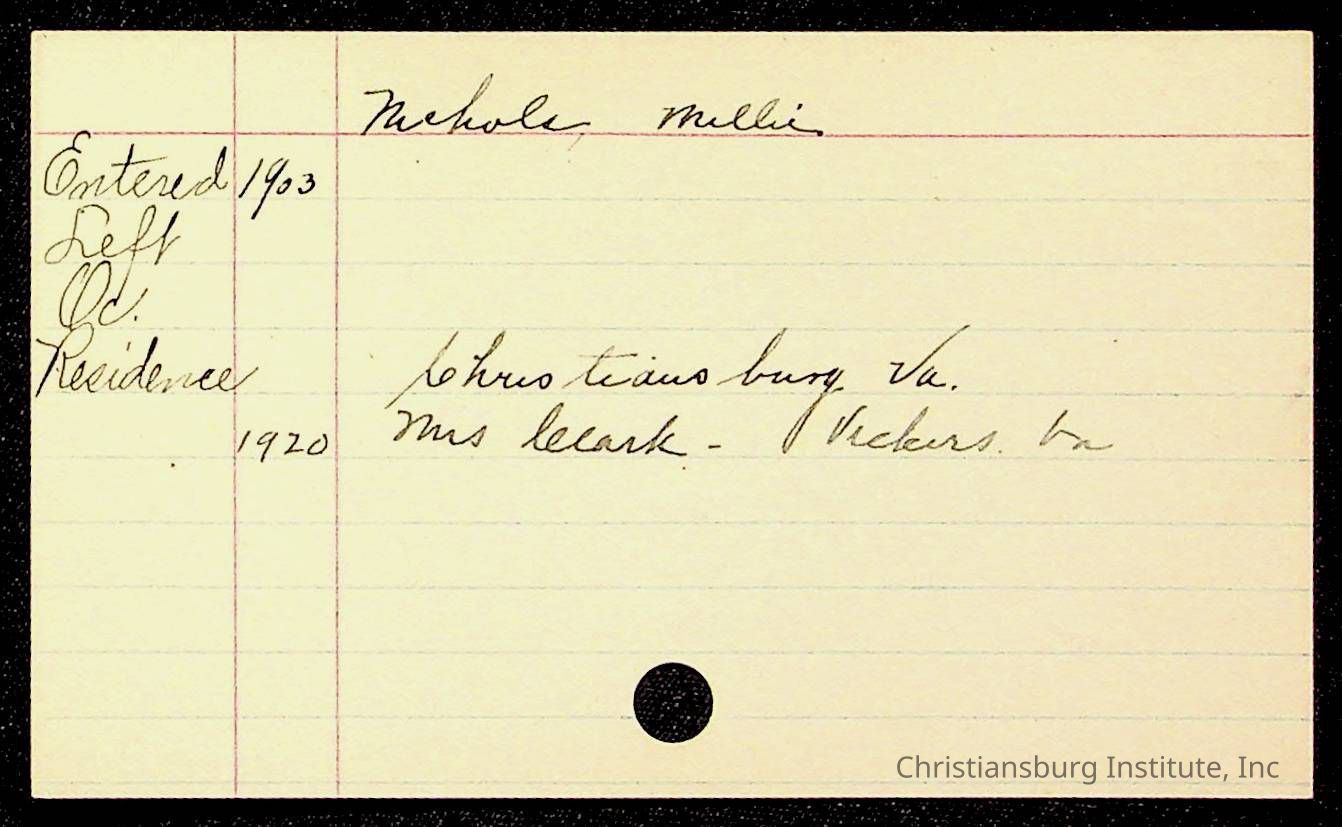 Nichols, Millie
Entered 1903
Left
Oc.
Residence Christiansburg Va.
1920 Mrs Clark - Vickers. Va
Christiansburg Institute, Inc